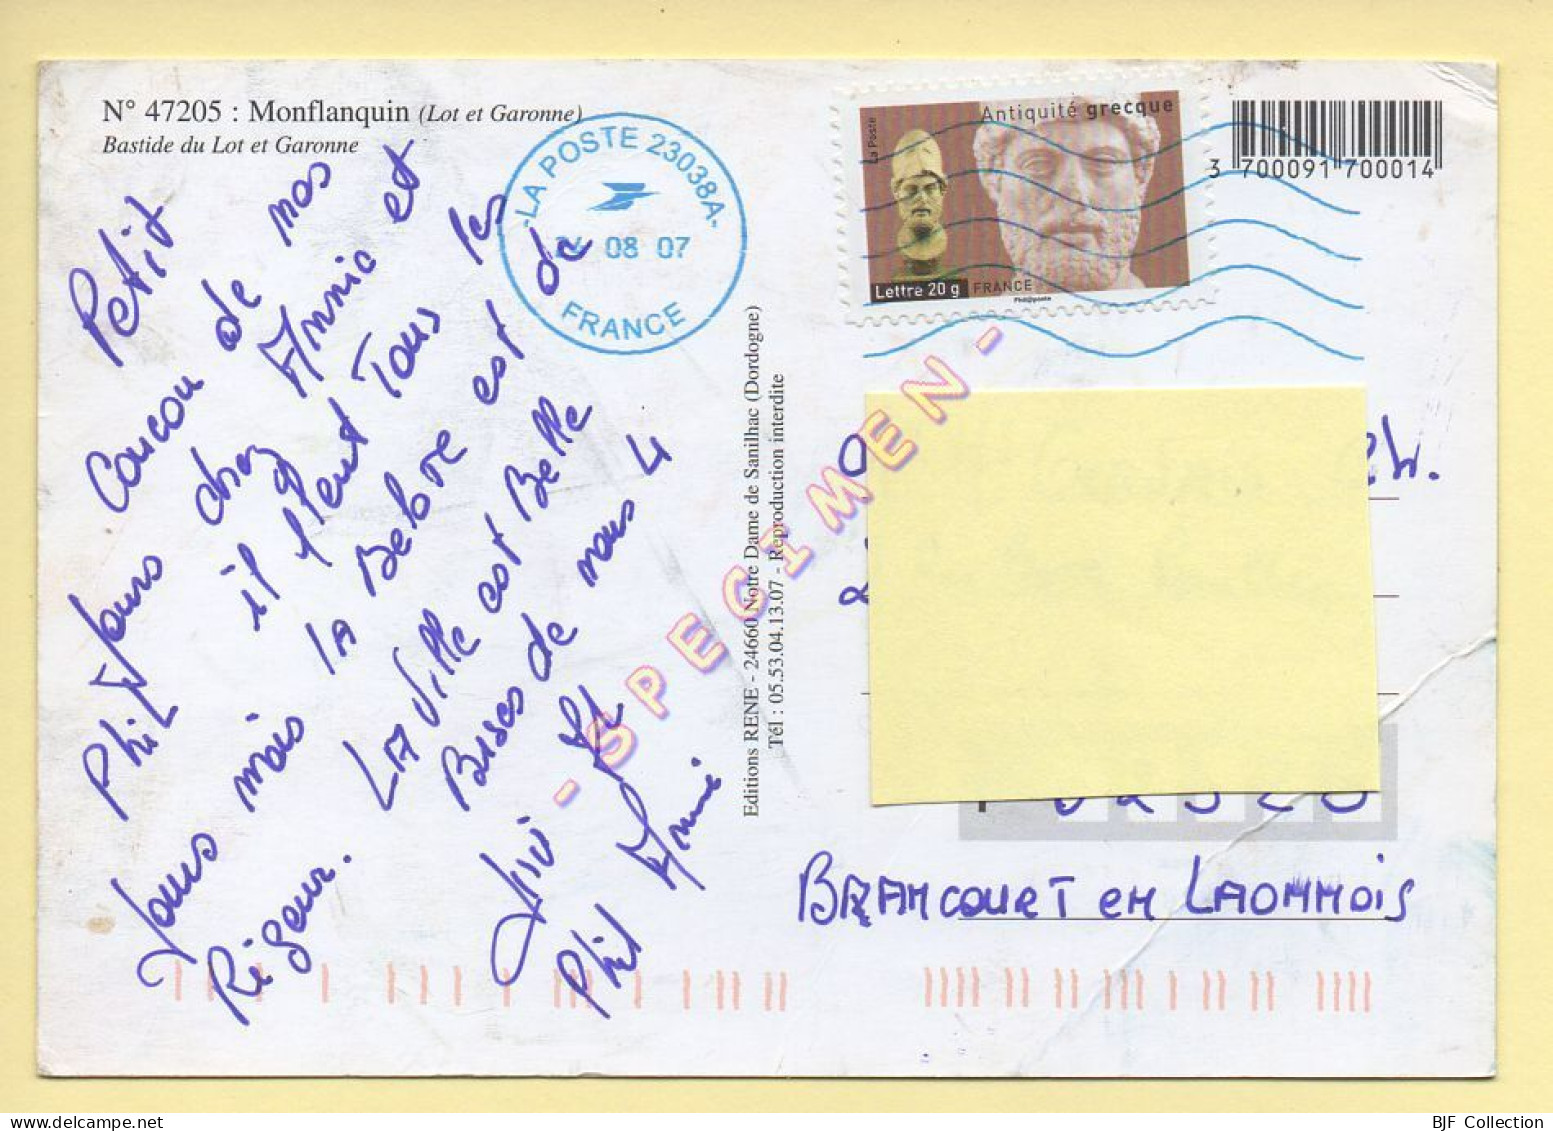 N° 47205 : Monflanquin (Lot et Garonne)
Bastide du Lot et Garonne
Petit
Coucou de nos
Jours chez Annie et
Phil il Pleut Tous les
Jours mais la Belote est de
Rigeur.
LA Ville est Belle
Bises de nous 4
Phil Annie
Editions RENE - 24660 Notre Dame de Sanilhac (Dordogne)
Tél : 05.53.04.13.07 - Reproduction interdite
LA POSTE 23038A
08 07
FRANCE
Antiquité grecque
La Poste
Lettre 20 g
FRANCE
Phil@poste
3 700091 700014
- SPECIMEN -
02320
BRANCOURT en LAONNOIS
BJF Collection